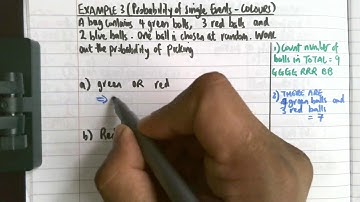 EXAMPLE 3 (Probability of Single Events - COLOURS)
A bag contains 4 green balls, 3 red balls and
2 blue balls. One ball is chosen at random. Work
out the probability of picking
a) green OR red
⇒
b)
1) Count number of
balls in TOTAL = 9
GGGG RRR BB
2) THERE ARE
4 green balls and
3 red balls
= 7